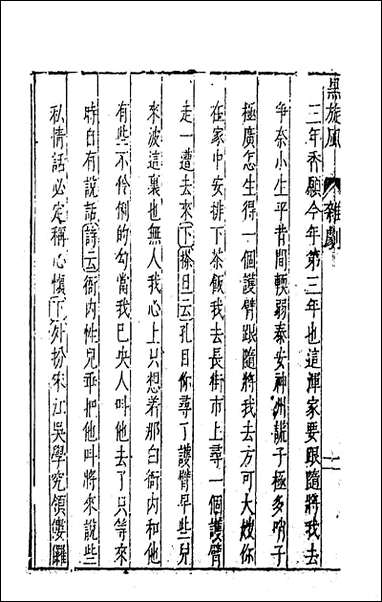 黑旋風 雜劇 一
三年香願今年第三年也這渾家要跟隨將我去
爭奈小生平昔間軟弱泰安神州謊子極多哨子
極廣怎生得一個護臂跟隨將我去方可大嫂你
在家中安排下茶飯我去長街市上尋一個護臂
走一遭去來下搽旦云孔目你尋了護臂早些兒
來波這裏也無人我心上只想着那白衙內和他
有些不伶俐的勾當我已央人叫他去了只等來
時自有說話詩云衙內性兒乖把他叫將來說些
私情話必定稱心懷下外扮宋江吳學究領僂儸